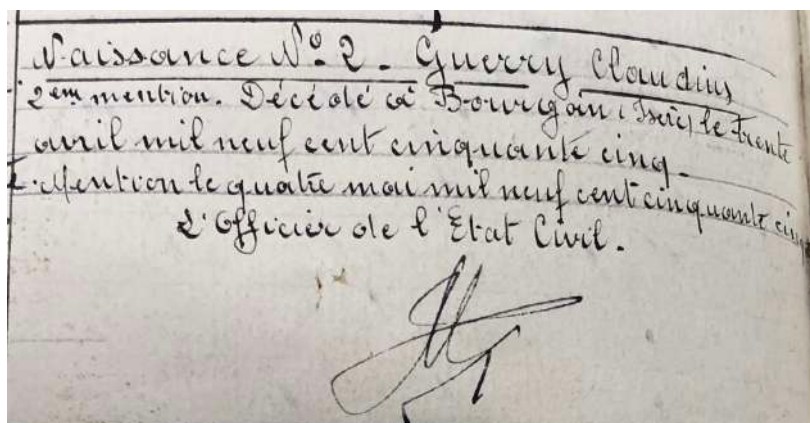 Naissance N° 2 - Guerry Claudius
2em mention. Décédé à Bourgoin (Isère) le trente
avril mil neuf cent cinquante cinq.
Mention le quatre mai mil neuf cent cinquante cinq
L'Officier de l'Etat Civil.